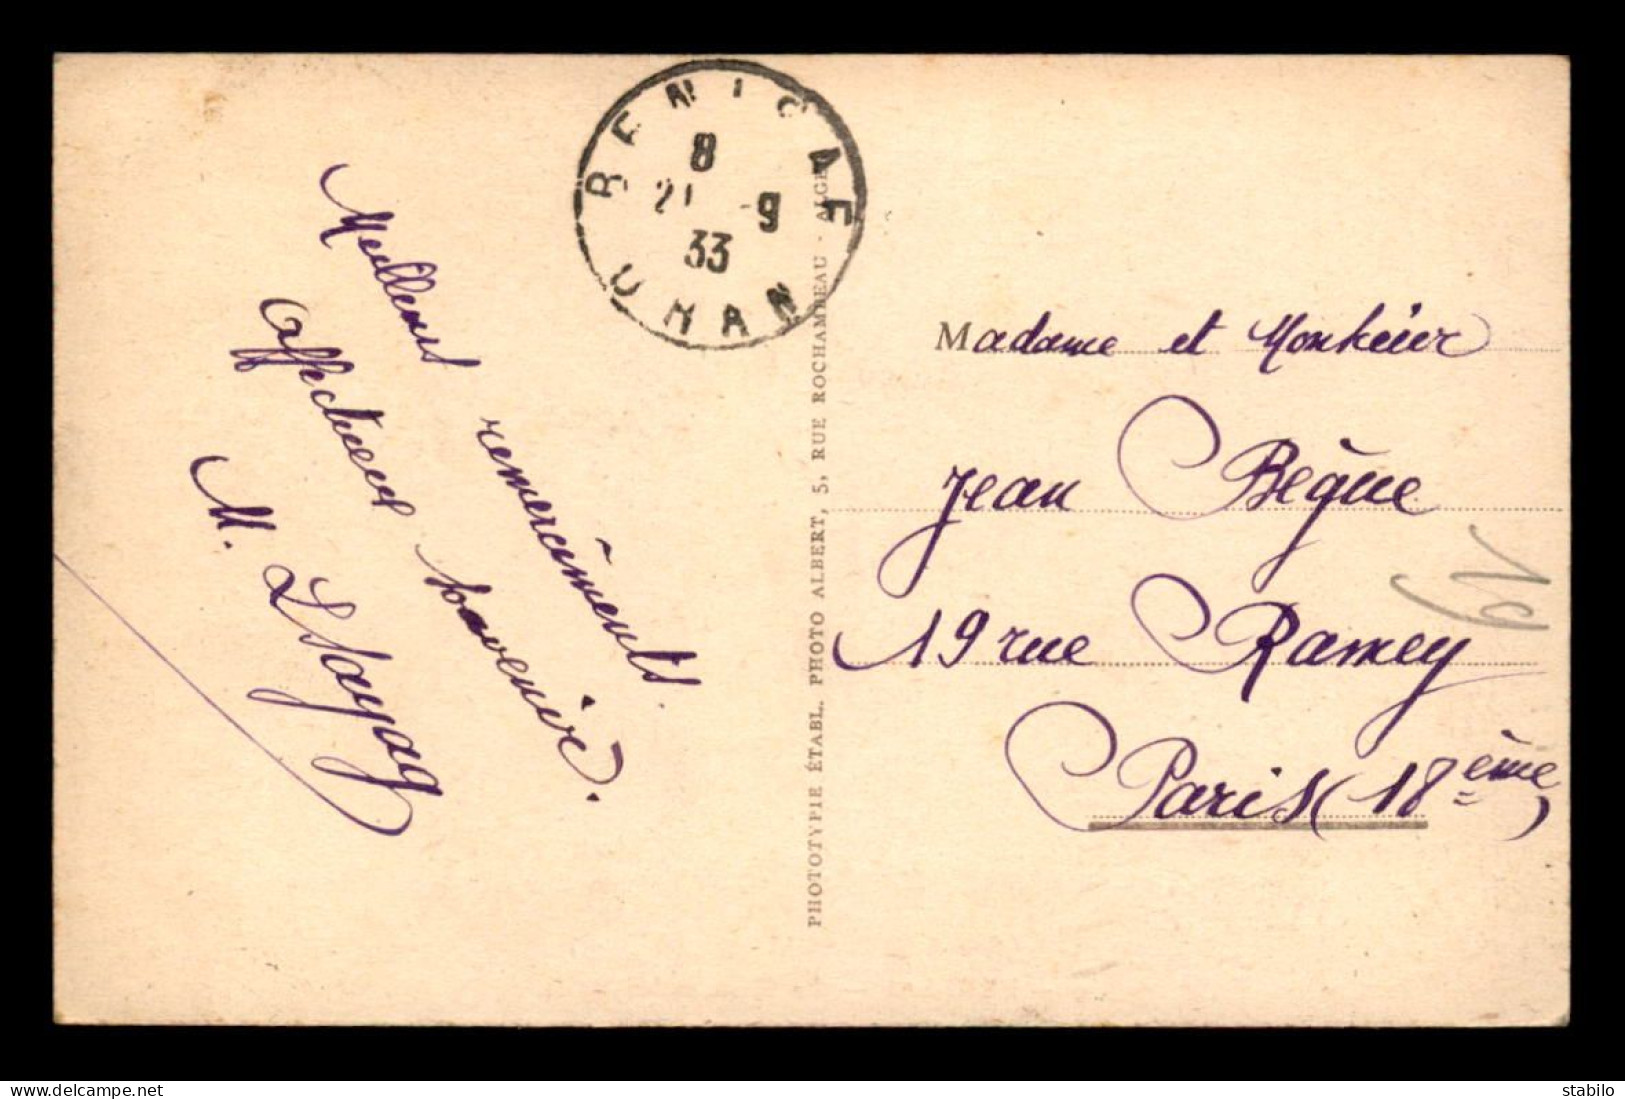 Meilleurs remerciements.
Affectueux souvenirs.
M. Lsayag
BENI SAF
8
21 -9
33
ORAN
PHOTOTYPIE ÉTABL. PHOTO ALBERT, 5, RUE ROCHAMBEAU - ALGER
Madame et Monsieur
Jean Bègue
19 rue Ramey
Paris (18ème)
delcampe.net
stabilo